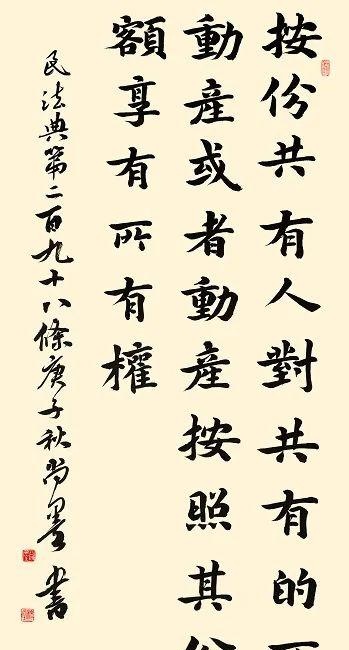 按份共有人對共有的不
動產或者動產按照其份
額享有所有權
民法典第二百九十八條庚子秋尚墨書